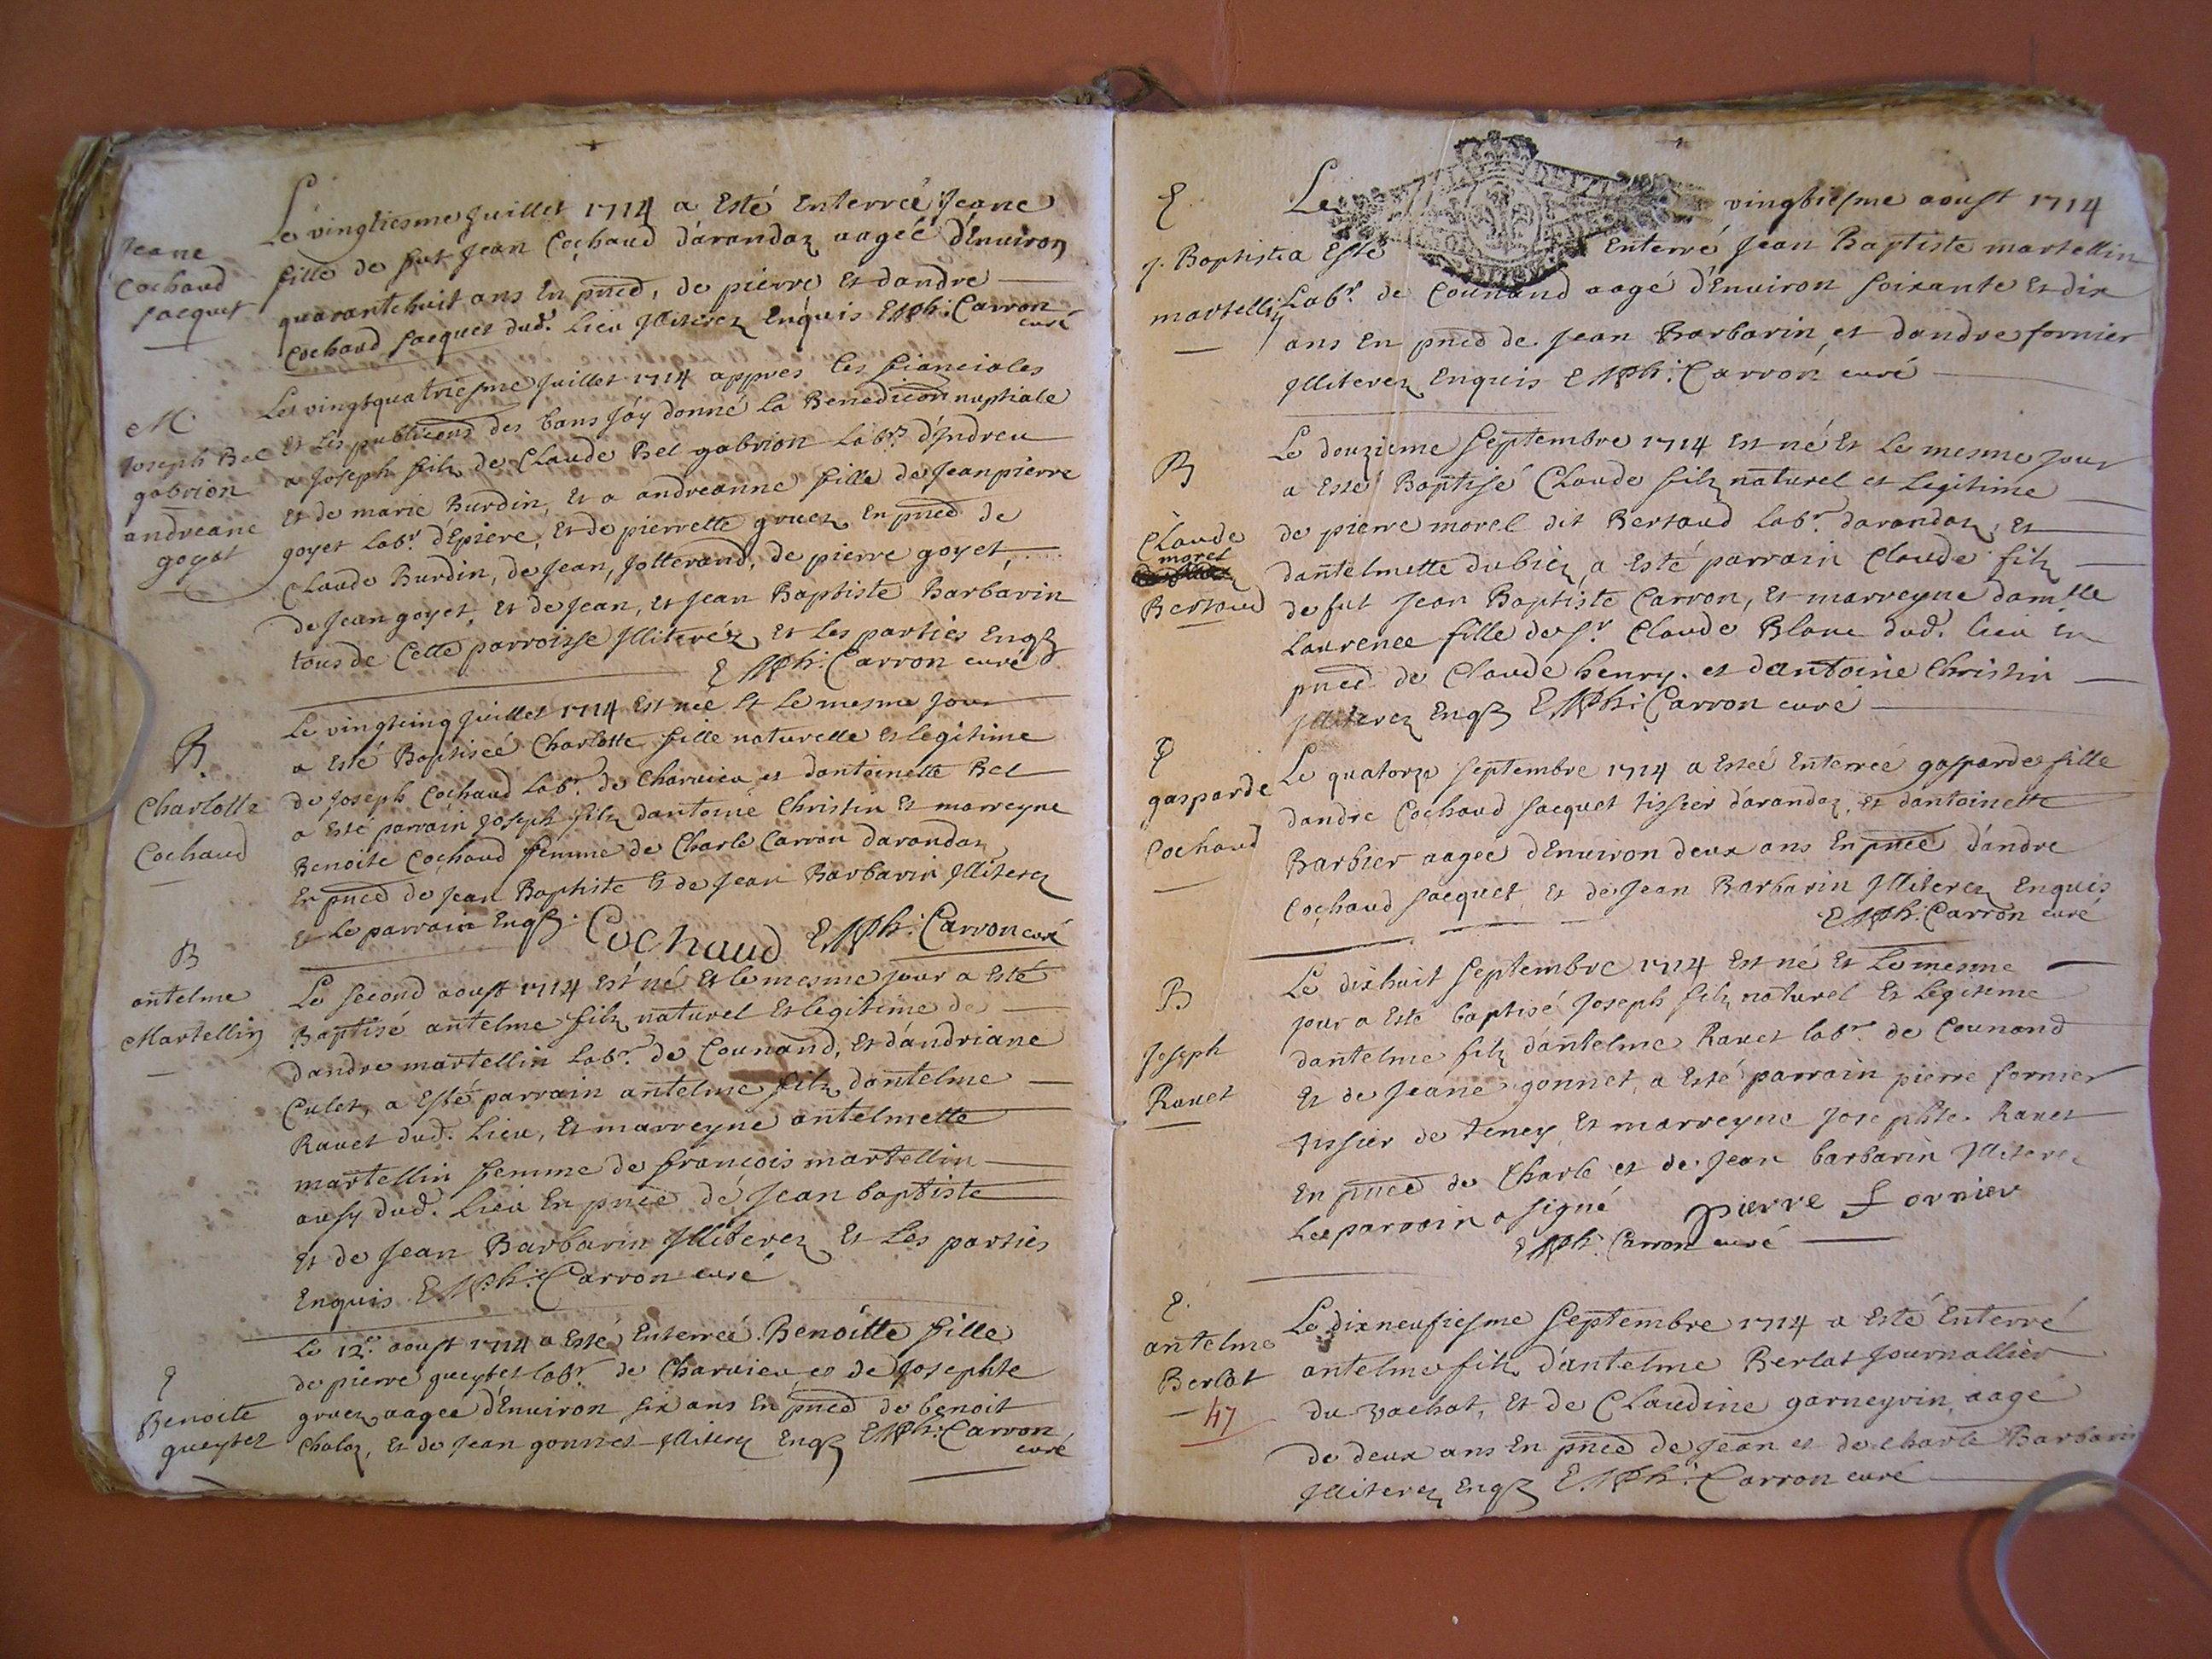 Jeane
Cochaud
Jacquet
Le vingtiesme Juillet 1714 a Esté Enterreé Jeane
fille de fut Jean Cochaud d'arandaz aageé d'Enuiron
quarantehuit ans En pñce, de pierre Et dandre
Cochaud Jacquet dud. Lieu Illiterez Enquis Carron
curé
M
Joseph Bel
gabrion
andreane
goyet
Le vingtquatriesme Juillet 1714 appres les fianciales
Et les publicons des bans J'ay donné la Benedicon nuptiale
a Joseph filz de Claude Bel gabrion Labr. d'Indrieu
Et de marie Burdin, Et a andreanne fille de Jeanpierre
goyet Labr. d'Epiere, Et de pierrette gruez En pñce de
Claude Burdin, de Jean, Jotterand, de pierre goyet,
de Jean goyet, Et de Jean, Et Jean Baptiste Barbarin
tous de Cette parroisse Illiteréz Et Les parties Enqs
Carron curé
B
Charlotte
Cochaud
Le vingtcinq Juillet 1714 Est neé Et Le mesme Jour
a Esté Baptiseé Charlotte fille naturelle Et legitime
de Joseph Cochaud Labr. de Charuieu et dantoinette Bel
a Esté parrain Joseph filz dantoine Christin Et marreyne
Benoite Cochaud femme de Charle Carron darandaz
En pñce de Jean Baptiste Et de Jean Barbarin Illiterez
Et Le parrain Enqs. Cochaud Carron curé
B
antelme
Martellin
Le second aoust 1714 est né Et le mesme Jour a Esté
Baptisé antelme filz naturel Et legitime de
dandre martellin Labr. de Counand, Et d'andriane
Culet, a Esté parrain antelme filz dantelme
Rauet dud. Lieu, Et marreyne antelmette
martellin femme de françois martellin
ausy dud. Lieu En pnce de Jean baptiste
Et de Jean Barbarin Illiterez Et Les parties
Enquis Carron curé
E
Benoite
gueytet
Le 12e. aoust 1714 a Esté Enterreé Benoitte fille
de pierre gueytet labr. de Charuieu et de Josephte
gruez aagee d'Enuiron six ans En pñce de benoit
Chaloz, Et de Jean gonnet Illiterez Enqs Carron
curé
E.
J. Baptiste
martellin
Le vingtiesme aoust 1714
a Esté Enterré Jean Baptiste martellin
Labr. de Counand aagé d'Enuiron soixante Et dix
ans En pñce de Jean Barbarin, et dandre fornier
Illiterez Enquis Carron curé
B
Claude
morel
Bertaud
Le douzieme Septembre 1714 Est né Et Le mesme Jour
a Esté Baptisé Claude filz naturel et Legitime
de pierre morel dit Bertaud Labr. darandaz, Et
dantelmette dubiez, a Esté parrain Claude filz
de fut Jean Baptiste Carron, Et marreyne damlle
Laurence fille de Sr. Claude Blanc dud. lieu En
pnce de Claude henry. et dantoine Christin
Illiterez Enqs Carron curé
E
gasparde
Cochaud
Le quatorze Septembre 1714 a Esteé Enterreé gasparde fille
dandre Cochaud Jacquet tissier darandaz, et dantoinette
Barbier aagee d'Enuiron deux ans En pñce d'andre
Cochaud Jacquet, Et de Jean Barbarin Illiterez Enquis
Carron curé
B
Joseph
Rauet
Le dixhuit Septembre 1714 Est né Et Le mesme
Jour a Esté baptisé Joseph filz naturel Et Legitime
dantelme filz d'antelme Rauet labr. de Counand
Et de Jeane gonnet, a Esté parrain pierre fornier
tissier de teney Et marreyne Josephte Rauet
En pñce de Charle et de Jean barbarin Illiterez
Le parrain a signé pierre fornier
Carron curé
E.
antelme
Berlat
47
Le dixneufiesme Septembre 1714 a Esté Enterré
antelme filz d'antelme Berlat Journallier
du vachat, Et de Claudine garneyrin, aagé
de deux ans En pñce de Jean et de Charle Barbarin
Illiterez Enqs Carron curé